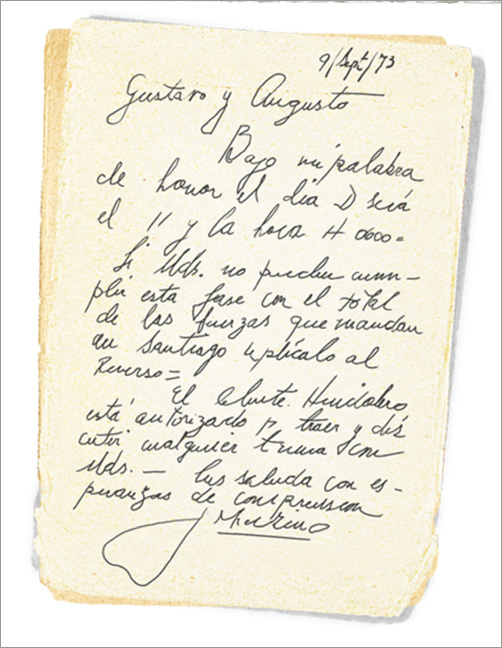 9/Sept/73
Gustavo y Augusto
Bajo mi palabra
de honor el dia D será
el 11 y la hora H 0600=
Si Uds. no pueden cum-
plir esta fase con el total
de las fuerzas que mandan
en Santiago explícalo al
Reverso=
El Almte. Huidobro
está autorizado p. traer y dis
cutir cualquier tema con
Uds. — Los saluda con es-
peranzas de comprension
J Merino